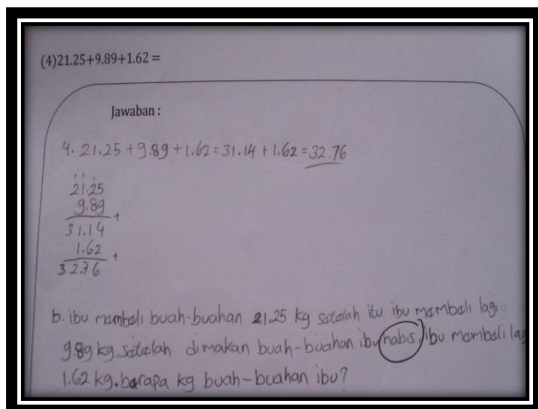 (4)21.25+9.89+1.62 =
Jawaban :
4. 21.25 + 9.89 + 1.62 = 31.14 + 1.62 = 32.76
21.25
9.89 +
31.14
1.62 +
32.76
b. ibu membeli buah-buahan 21,25 kg setelah itu ibu membeli lagi
9.89 kg setelah dimakan buah-buahan ibu habis, ibu membeli lag
1.62 kg. berapa kg buah-buahan ibu?